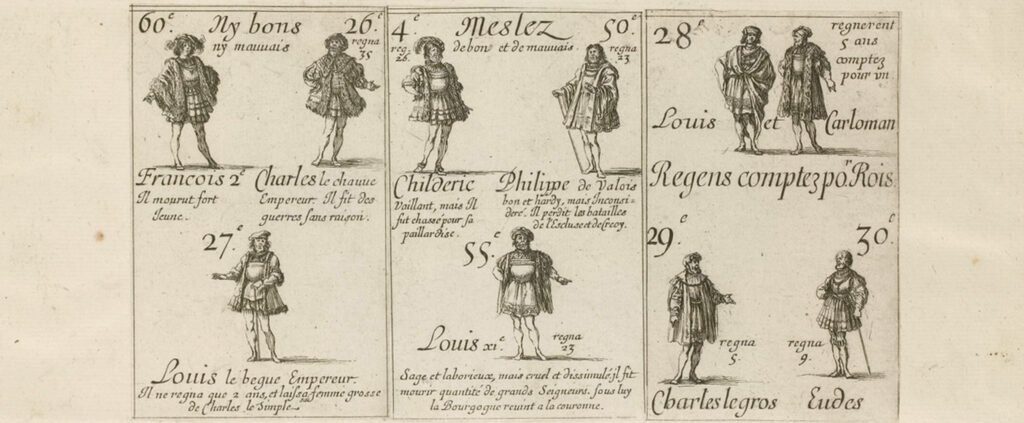 60.e Ny bons 26.e
ny mauvais
regna
35
Francois 2.e
Il mourut fort
Jeune.
Charles le chauve
Empereur. Il fit des
guerres sans raison.
27.e
Louis le begue Empereur.
Il ne regna que 2 ans, et laissa sa femme grosse
de Charles le Simple
4.e Meslez 50.e
de bon et de mauvais
reg.
26.
regna
23
Childeric
Vaillant, mais Il
fut chassé pour sa
paillardise.
Philippe de Valois
bon et hardy, mais Inconsi-
deré. Il perdit les batailles
de l'Escluse et de Crecy.
55.e
Louis XI.e
regna
23
Sage et laborieux, mais cruel et dissimulé, il fit
mourir quantité de grands Seigneurs. sous luy
la Bourgogne revint a la couronne.
28.e
regnerent
5 ans
comptez
pour vn.
Louis et Carloman
Regens comptez po.r Rois.
29.e 30.e
regna
5.
regna
9.
Charles le gros
Eudes